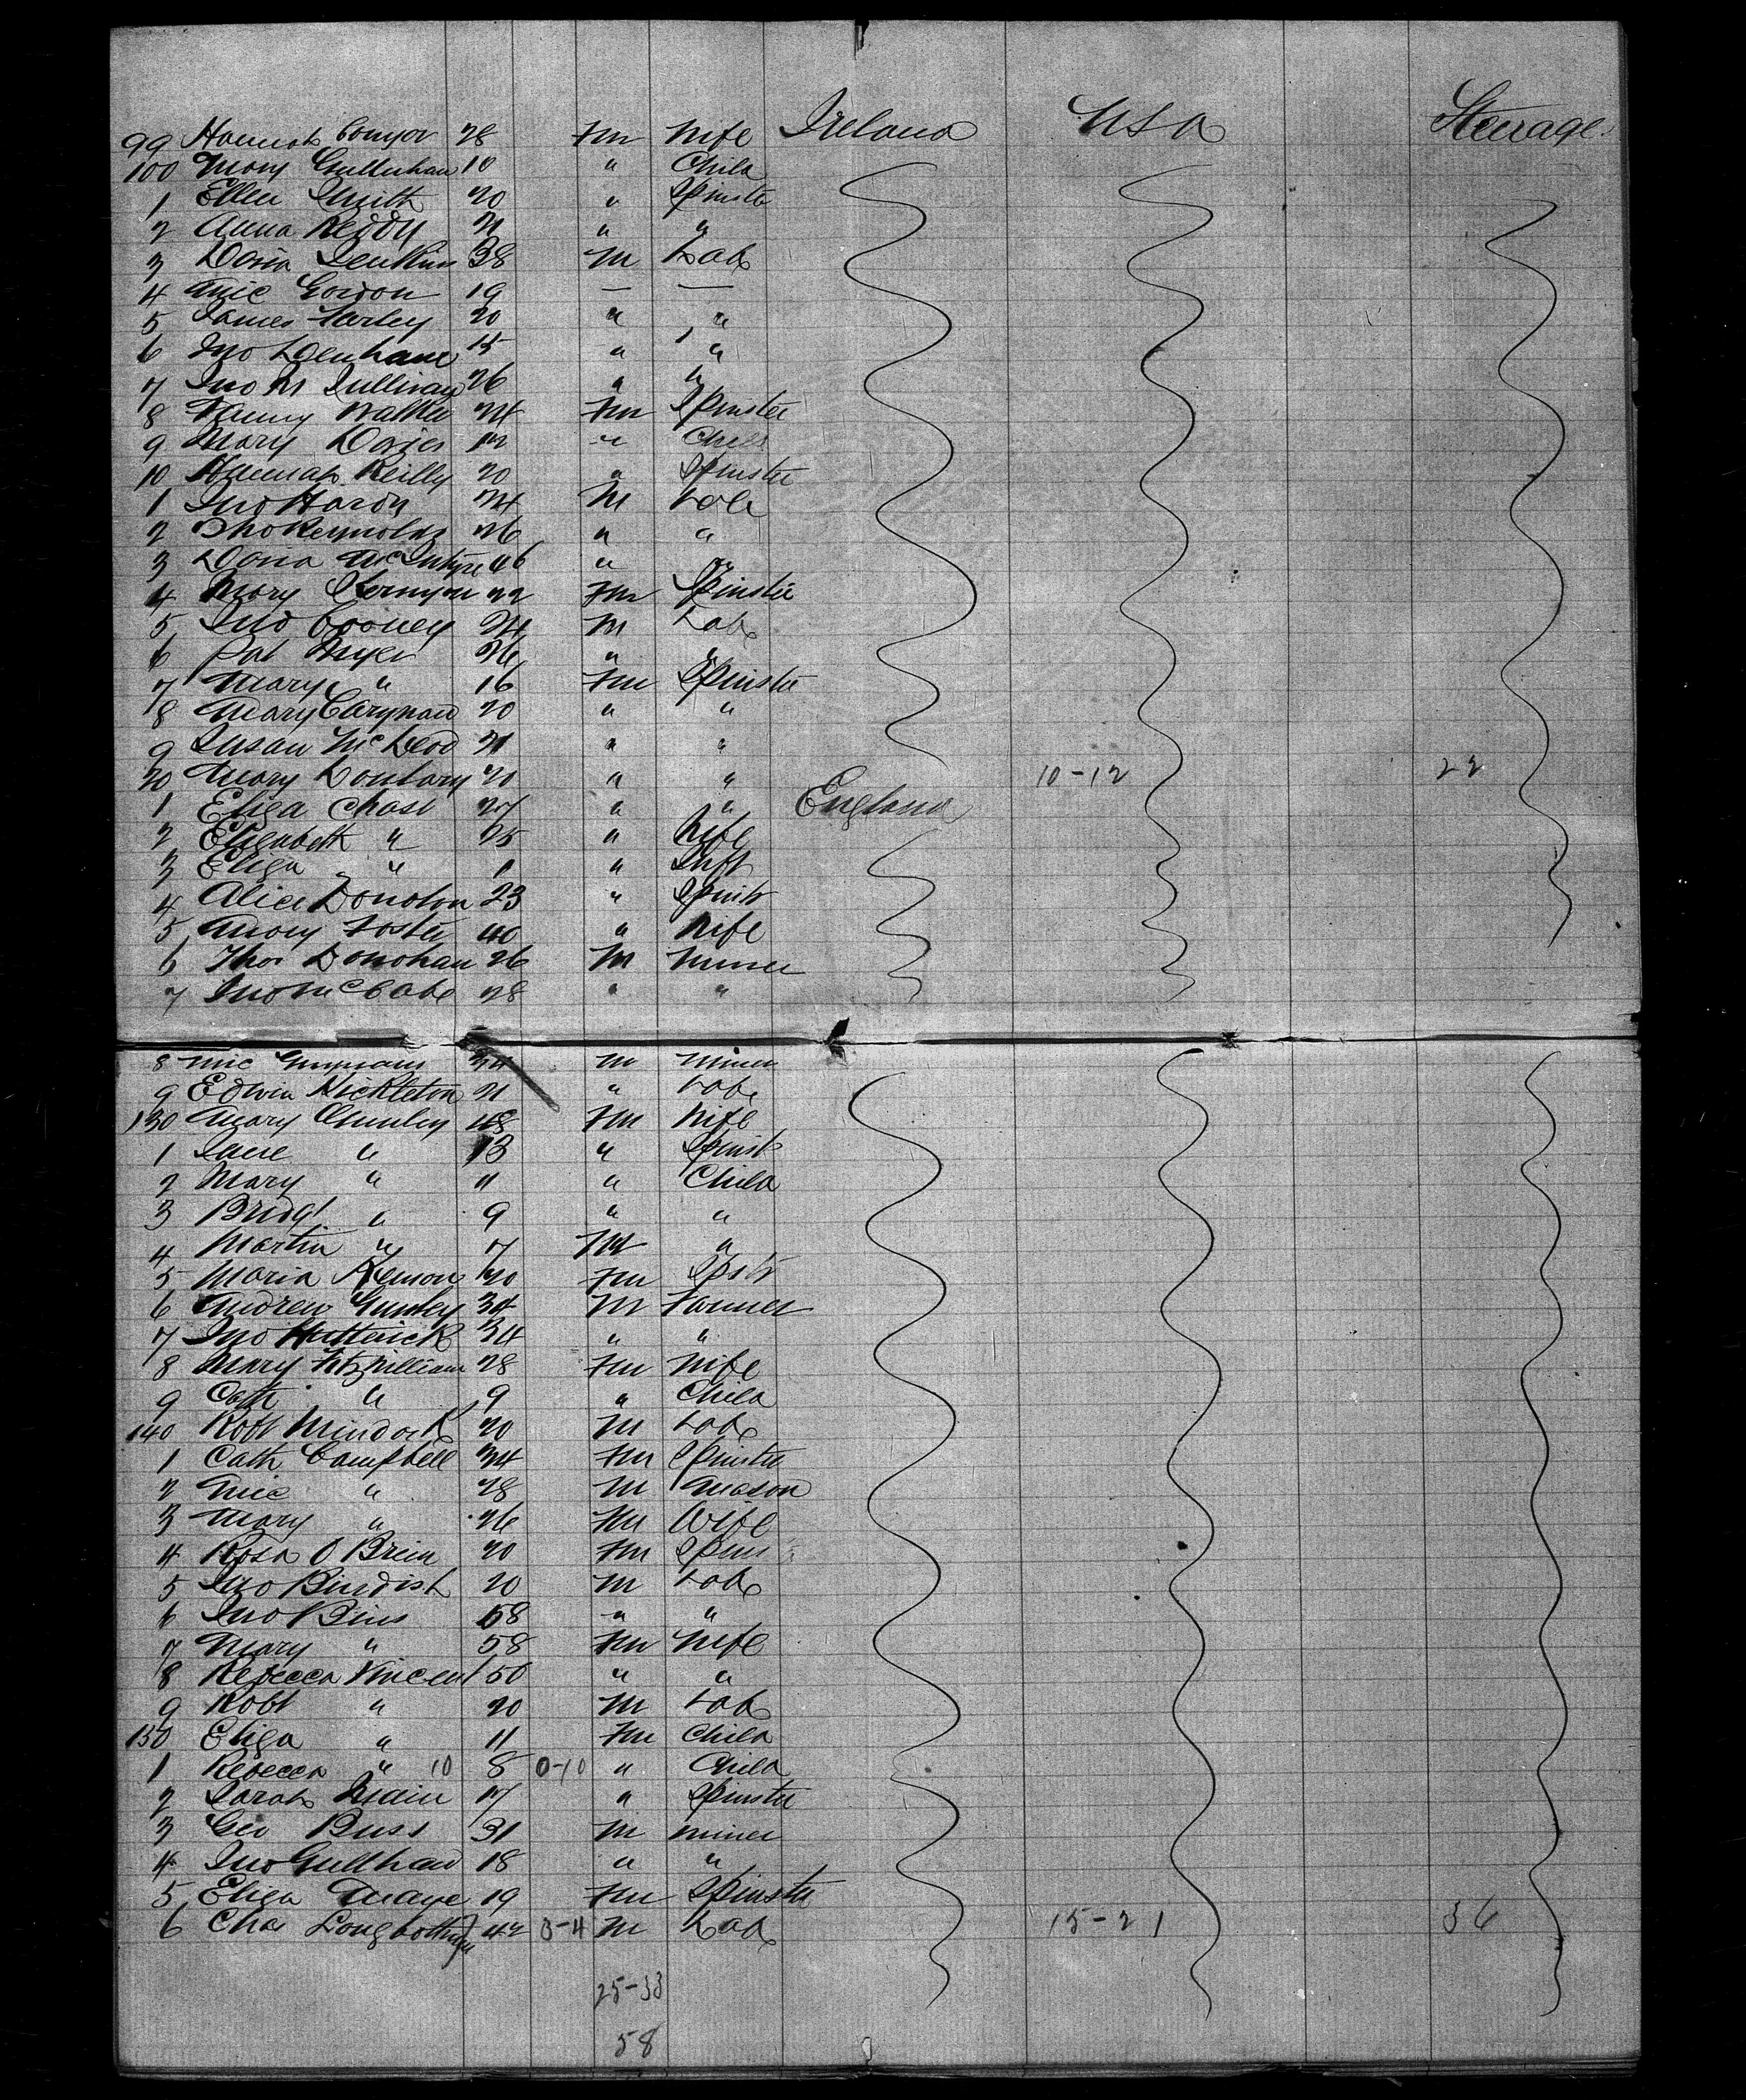 99 Hannah Conyor 28 Fm Wife Ireland USA Steerage
100 Mary 10 " Child
1 Ellen Smith 20 " Spinster
2 Anna Reddy 21 " "
3 David Jenkins 38 M Lab
4 Mic Gordon 19 — —
5 James Harley 20 " "
6 Jno Denham 15 " "
7 Jno M Sullivan 26 " "
8 Fanny Walker 24 Fm Spinster
9 Mary Davies 12 " Child
10 Hannah Reilly 20 " Spinster
1 Jno Hardy 24 M Lab
2 Tho Reynolds 26 " "
3 David McIntyre 46 " "
4 Mary 22 Fm Spinster
5 Jno Cooney 24 M Lab
6 Pat Dwyer 26 " "
7 Mary " 16 Fm Spinster
8 Mary 20 " "
9 Susan McLeod 21 " "
20 Mary 20 " " 10-12 22
1 Eliza Chase 27 " " England
2 Elizabeth " 25 " Wife
3 Eliza " 1 " Inft
4 Alice Donolon 23 " Spinstr
5 Mary Foster 40 " Wife
6 Thos Donohan 26 M Miner
7 Jno McCabe 28 " "
8 Mic 34 M Miner
9 Edwin Hickleton 21 " Lab
130 Mary 48 Fm Wife
1 Jane " 13 " Spinst
2 Mary " 11 " Child
3 Bridgt " 9 " "
4 Martin " 7 M "
5 Maria 20 Fm Spstr
6 Andrew 34 M Farmer
7 Jno 34 " "
8 Mary Fitzwilliam 28 Fm Wife
9 Cath " 9 " Child
140 Robt 20 M Lab
1 Cath Campbell 34 Fm Spinster
2 Mic " 28 M Mason
3 Mary " 26 Fm Wife
4 Rosa O Brein 20 Fm Spins
5 Jno 20 M Lab
6 Jno Bins 58 " "
7 Mary " 58 Fm Wife
8 Rebecca Vincent 50 " "
9 Robt " 20 M Lab
150 Eliza " 11 Fm Child
1 Rebecca " 10 8 0-10 " Child
2 Sarah 17 " Spinster
3 Geo Buss 31 M Miner
4 Jno 18 " "
5 Eliza Maye 19 Fm Spinster
6 Chas Longbottom 42 3-4 M Lab 15-21 36
25-33
58